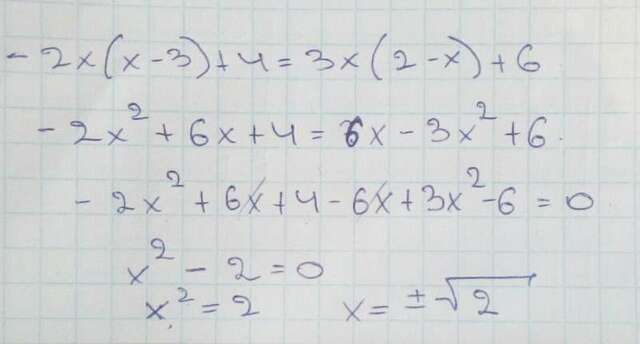 - 2x(x-3)+4=3x(2-x)+6
- 2x² + 6x+4 = 6x - 3x² +6.
- 2x² + 6x+4-6x+3x²-6 = 0
x² - 2 = 0
x² = 2 x= ±√2